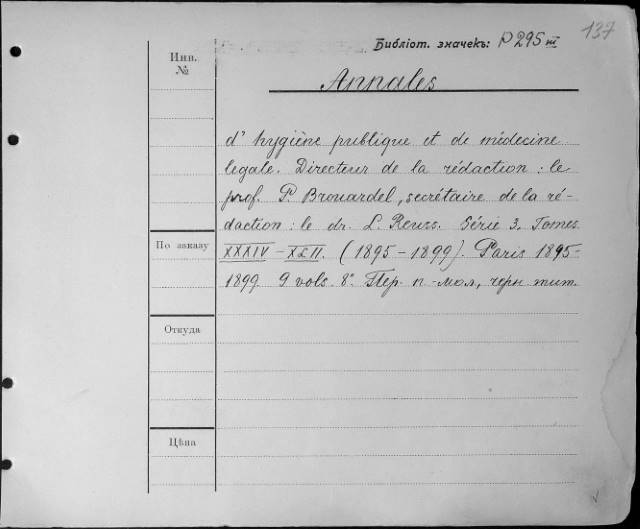 137
Библіот. значекъ: P 295 III
Инв. №
Annales
d'hygiène publique et de médecine
legale. Directeur de la rédaction : le
prof. P. Brouardel, secrétaire de la ré-
daction : le dr. L. Reuss. Série 3. Tomes
По заказу
XXXIV – XLII. (1895 – 1899). Paris 1895-
1899 9 vols. 8°. Пер. п.-мол., черн тит.
Откуда
Цѣна